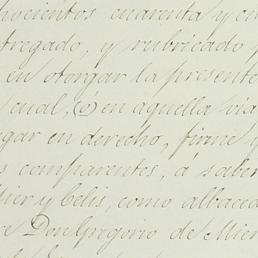 hocientos cuarenta y cu
tregado, y rubricado y
en otorgar la presente
cual, (ó) en aquella via
gar en derecho, firme y
s comparentes, á saber
Mier y Celis, como albacea
re Don Gregorio de Mier